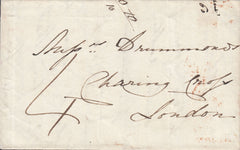 Mess.rs Drummonds
Charing Cross
4
London